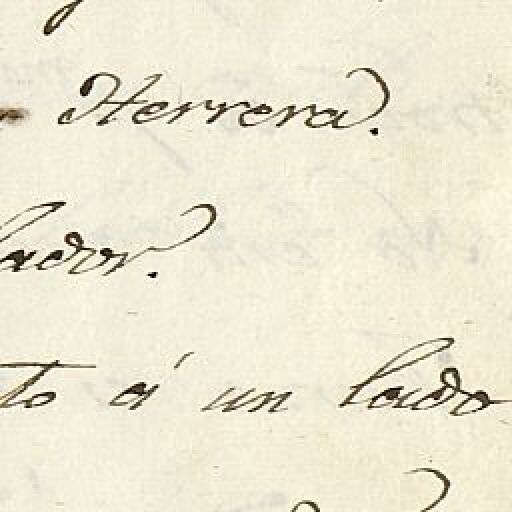 Herrera.
lador.
to á un lado